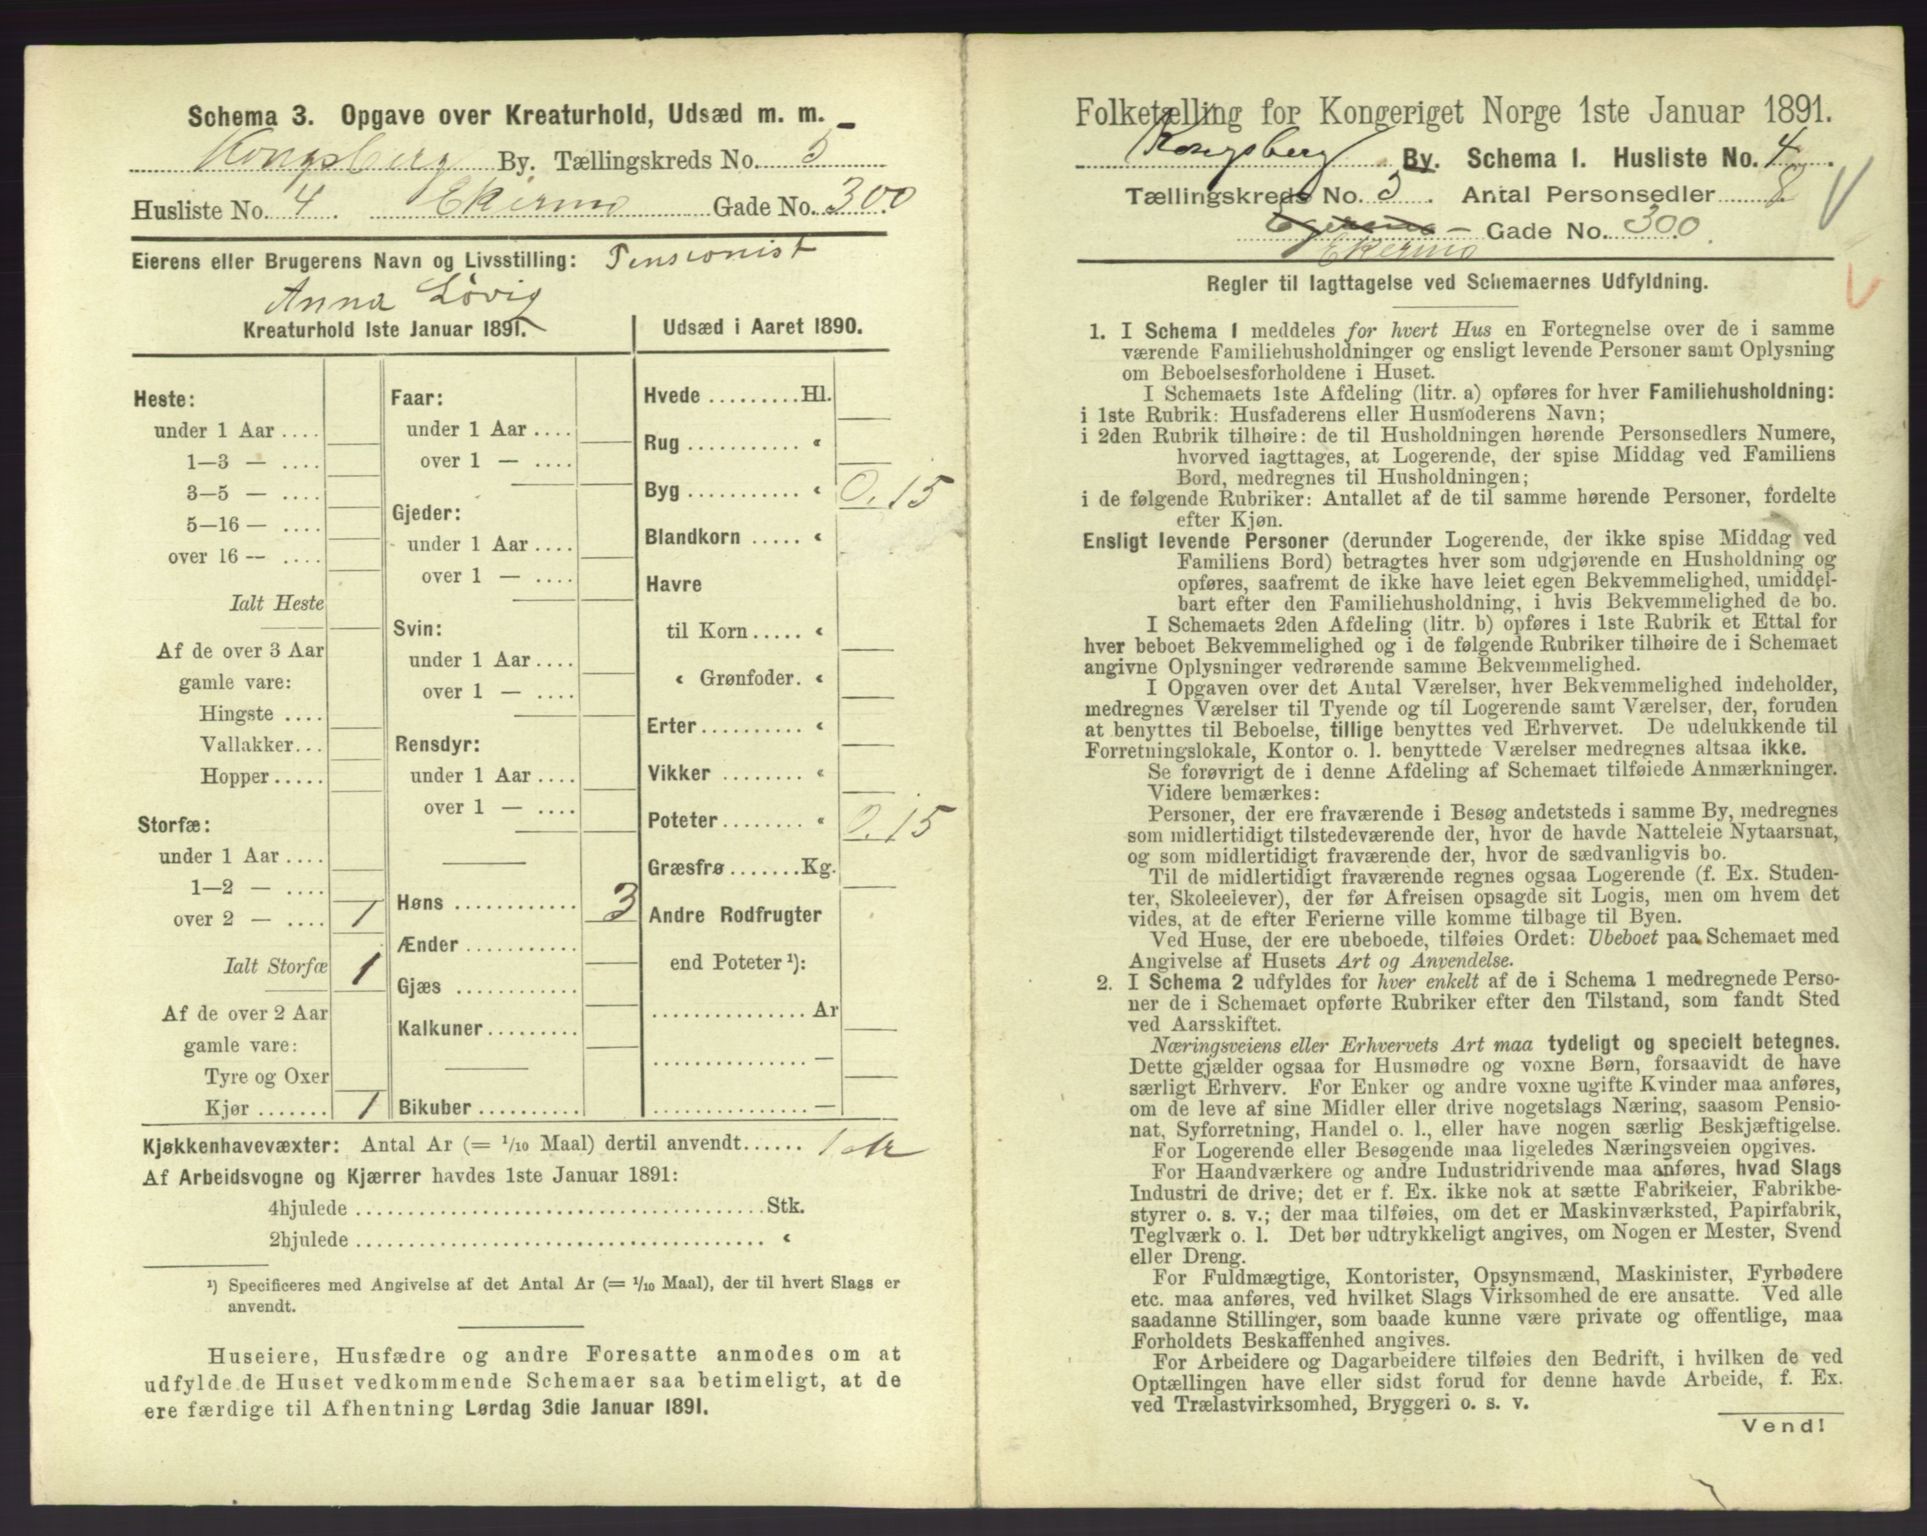 Schema 3. Opgave over Kreaturhold, Udsæd m. m.
Kongsberg By. Tællingskreds No. 5
Husliste No. 4 Ekermo Gade No. 300
Eierens eller Brugerens Navn og Livsstilling: Pensionist
Anna Løvig
Kreaturhold 1ste Januar 1891.
Heste:
under 1 Aar ....
1—3 — ....
3—5 — ....
5—16 — ....
over 16 — ....
Ialt Heste
Af de over 3 Aar
gamle vare:
Hingste ....
Vallakker...
Hopper.....
Storfæ:
under 1 Aar ....
1—2 — ....
over 2 — .... 1
Ialt Storfæ 1
Af de over 2 Aar
gamle vare:
Tyre og Oxer
Kjør ....... 1
Faar:
under 1 Aar ....
over 1 — ....
Gjeder:
under 1 Aar ....
over 1 — ....
Svin:
under 1 Aar ....
over 1 — ....
Rensdyr:
under 1 Aar ....
over 1 — ....
Høns ............ 3
Ænder ...........
Gjæs ............
Kalkuner.........
Bikuber..........
Udsæd i Aaret 1890.
Hvede .........Hl.
Rug ........... «
Byg ........... « 0.15
Blandkorn ..... «
Havre
til Korn ..... «
« Grønfoder. «
Erter.......... «
Vikker ........ «
Poteter........ « 0.15
Græsfrø.......Kg.
Andre Rodfrugter
end Poteter ¹):
............... Ar
............... —
............... —
Kjøkkenhavevæxter: Antal Ar (= 1/10 Maal) dertil anvendt...... 1 Ar
Af Arbeidsvogne og Kjærrer havdes 1ste Januar 1891:
4hjulede ........................................Stk.
2hjulede ........................................ «
¹) Specificeres med Angivelse af det Antal Ar (= 1/10 Maal), der til hvert Slags er
anvendt.
Huseiere, Husfædre og andre Foresatte anmodes om at
udfylde de Huset vedkommende Schemaer saa betimeligt, at de
ere færdige til Afhentning Lørdag 3die Januar 1891.
Folketælling for Kongeriget Norge 1ste Januar 1891.
Kongsberg By. Schema 1. Husliste No. 4
Tællingskreds No. 5 . Antal Personsedler 8
— Gade No. 300
Ekermo
Regler til Iagttagelse ved Schemaernes Udfyldning.
1. I Schema 1 meddeles for hvert Hus en Fortegnelse over de i samme
værende Familiehusholdninger og ensligt levende Personer samt Oplysning
om Beboelsesforholdene i Huset.
I Schemaets 1ste Afdeling (litr. a) opføres for hver Familiehusholdning:
i 1ste Rubrik: Husfaderens eller Husmoderens Navn;
i 2den Rubrik tilhøire: de til Husholdningen hørende Personsedlers Numere,
hvorved iagttages, at Logerende, der spise Middag ved Familiens
Bord, medregnes til Husholdningen;
i de følgende Rubriker: Antallet af de til samme hørende Personer, fordelte
efter Kjøn.
Ensligt levende Personer (derunder Logerende, der ikke spise Middag ved
Familiens Bord) betragtes hver som udgjørende en Husholdning og
opføres, saafremt de ikke have leiet egen Bekvemmelighed, umiddel-
bart efter den Familiehusholdning, i hvis Bekvemmelighed de bo.
I Schemaets 2den Afdeling (litr. b) opføres i 1ste Rubrik et Ettal for
hver beboet Bekvemmelighed og i de følgende Rubriker tilhøire de i Schemaet
angivne Oplysninger vedrørende samme Bekvemmelighed.
I Opgaven over det Antal Værelser, hver Bekvemmelighed indeholder,
medregnes Værelser til Tyende og til Logerende samt Værelser, der, foruden
at benyttes til Beboelse, tillige benyttes ved Erhvervet. De udelukkende til
Forretningslokale, Kontor o. l. benyttede Værelser medregnes altsaa ikke.
Se forøvrigt de i denne Afdeling af Schemaet tilføiede Anmærkninger.
Videre bemærkes:
Personer, der ere fraværende i Besøg andetsteds i samme By, medregnes
som midlertidigt tilstedeværende der, hvor de havde Natteleie Nytaarsnat,
og som midlertidigt fraværende der, hvor de sædvanligvis bo.
Til de midlertidigt fraværende regnes ogsaa Logerende (f. Ex. Studen-
ter, Skoleelever), der før Afreisen opsagde sit Logis, men om hvem det
vides, at de efter Ferierne ville komme tilbage til Byen.
Ved Huse, der ere ubeboede, tilføies Ordet: Ubeboet paa Schemaet med
Angivelse af Husets Art og Anvendelse.
2. I Schema 2 udfyldes for hver enkelt af de i Schema 1 medregnede Perso-
ner de i Schemaet opførte Rubriker efter den Tilstand, som fandt Sted
ved Aarsskiftet.
Næringsveiens eller Erhvervets Art maa tydeligt og specielt betegnes.
Dette gjælder ogsaa for Husmødre og voxne Børn, forsaavidt de have
særligt Erhverv. For Enker og andre voxne ugifte Kvinder maa anføres,
om de leve af sine Midler eller drive nogetslags Næring, saasom Pensio-
nat, Syforretning, Handel o. l., eller have nogen særlig Beskjæftigelse.
For Logerende eller Besøgende maa ligeledes Næringsveien opgives.
For Haandværkere og andre Industridrivende maa anføres, hvad Slags
Industri de drive; det er f. Ex. ikke nok at sætte Fabrikeier, Fabrikbe-
styrer o. s. v.; der maa tilføies, om det er Maskinværksted, Papirfabrik,
Teglværk o. l. Det bør udtrykkeligt angives, om Nogen er Mester, Svend
eller Dreng.
For Fuldmægtige, Kontorister, Opsynsmænd, Maskinister, Fyrbødere
etc. maa anføres, ved hvilket Slags Virksomhed de ere ansatte. Ved alle
saadanne Stillinger, som baade kunne være private og offentlige, maa
Forholdets Beskaffenhed angives.
For Arbeidere og Dagarbeidere tilføies den Bedrift, i hvilken de ved
Optællingen have eller sidst forud for denne havde Arbeide, f. Ex.
ved Trælastvirksomhed, Bryggeri o. s. v.
Vend!